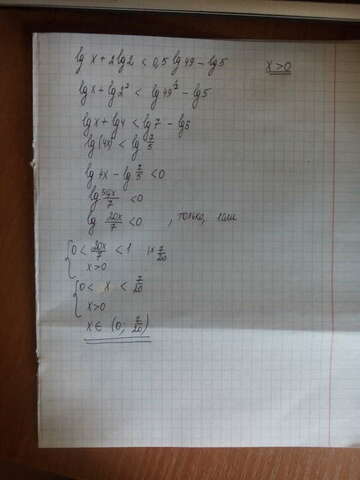 lg x + 2 lg 2 < 0,5 lg 49 - lg 5    x > 0
lg x + lg 2² < lg 49^½ - lg 5
lg x + lg 4 < lg 7 - lg 5
lg (4x) < lg 7/5
lg 4x - lg 7/5 < 0
lg 5·4x/7 < 0
lg 20x/7 < 0 , только, если
{ 0 < 20x/7 < 1 |× 7/20
x > 0
{ 0 < x < 7/20
x > 0
x ∈ (0; 7/20)